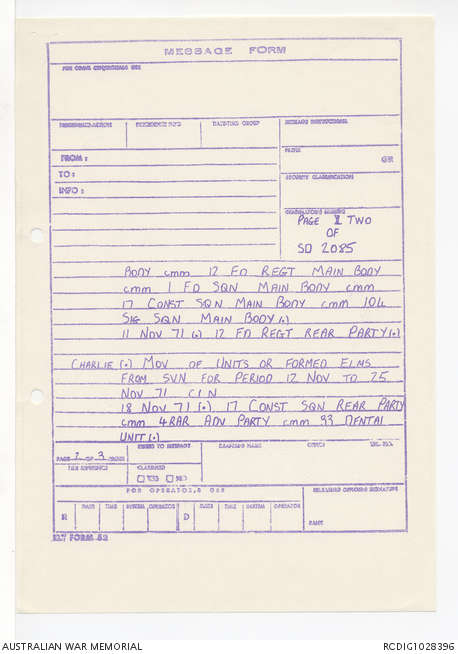 MESSAGE FORM
FOR COMM. CEN/SIGNALS USE
PRECEDENCE-ACTION
PRECEDENCE INFO
DATE/TIME GROUP
MESSAGE INSTRUCTIONS
FROM:
PREFIX
GR
TO:
SECURITY CLASSIFICATION
INFO:
ORIGINATOR'S NUMBER
PAGE TWO
OF
SD 2085
BODY cmm 12 FD REGT MAIN BODY
cmm 1 FD SQN MAIN BODY cmm
17 CONST SQN MAIN BODY cmm 104
SIG SQN MAIN BODY (.)
11 NOV 71 (.) 12 FD REGT REAR PARTY (.)
CHARLIE (.) MOV OF UNITS OR FORMED ELMS
FROM SVN FOR PERIOD 12 NOV TO 25
NOV 71 CLN
18 NOV 71 (.) 17 CONST SQN REAR PARTY
cmm 4RAR ADV PARTY cmm 33 DENTAL
UNIT (.)
PAGE 2 OF 3 PAGES
REFERS TO MESSAGE
DRAFTERS NAME
OFFICE
TEL. No.
FILE REFERENCE
CLASSIFIED
YES NO
FOR OPERATOR'S USE
RELEASING OFFICERS SIGNATURE
R DATE TIME SYSTEM OPERATOR D DATE TIME SYSTEM OPERATOR
NAME
FORM 52
AUSTRALIAN WAR MEMORIAL
RCDIG1028396